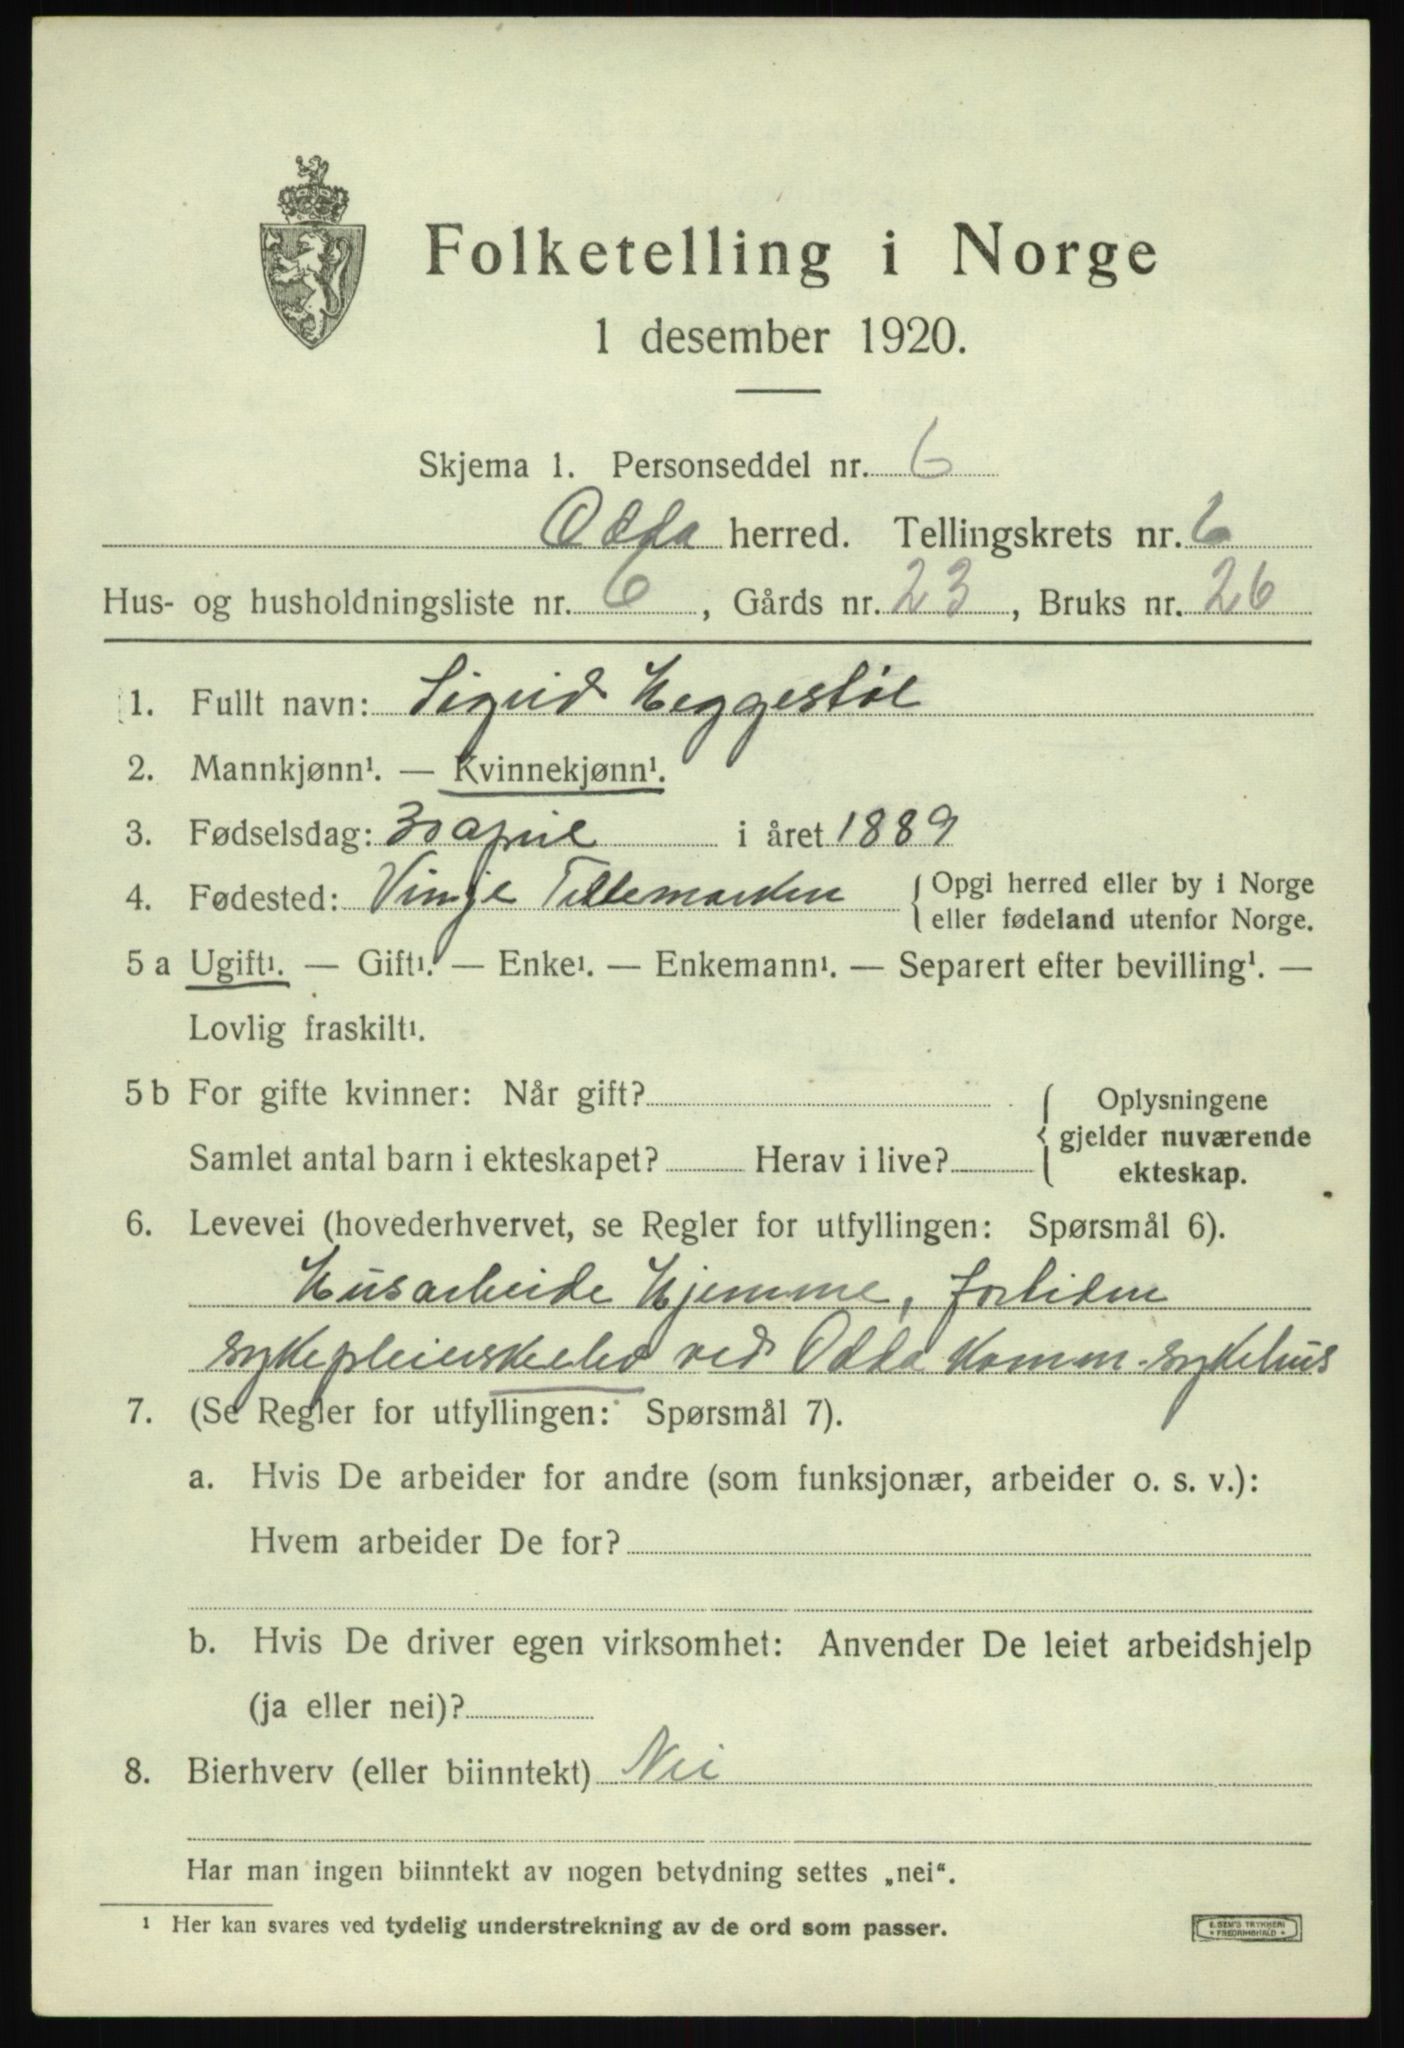 Folketelling i Norge
1 desember 1920.
Skjema 1. Personseddel nr. 6
Odda herred. Tellingskrets nr. 6
Hus- og husholdningsliste nr. 6, Gårds nr. 23, Bruks nr. 26
1. Fullt navn: Sigrid Heggestøl
2. Mannkjønn¹. — Kvinnekjønn¹.
3. Fødselsdag: 30 april i året 1889
4. Fødested: Vinje Tellemarken { Opgi herred eller by i Norge
eller fødeland utenfor Norge.
5 a Ugift¹. — Gift¹. — Enke¹. — Enkemann¹. — Separert efter bevilling¹. —
Lovlig fraskilt¹.
5 b For gifte kvinner: Når gift? { Oplysningene
gjelder nuværende
Samlet antal barn i ekteskapet? Herav i live?
ekteskap.
6. Levevei (hovederhvervet, se Regler for utfyllingen: Spørsmål 6).
Husarbeide Hjemme, fortiden
sykepleierskeelev ved Odda Komm. sykehus
7. (Se Regler for utfyllingen: Spørsmål 7).
a. Hvis De arbeider for andre (som funksjonær, arbeider o. s. v.):
Hvem arbeider De for?
b. Hvis De driver egen virksomhet: Anvender De leiet arbeidshjelp
(ja eller nei)?
8. Bierhverv (eller biinntekt) Nei
Har man ingen biinntekt av nogen betydning settes „nei“.
¹ Her kan svares ved tydelig understrekning av de ord som passer.
E. SEM'S TRYKKERI
FREDRIKSHALD